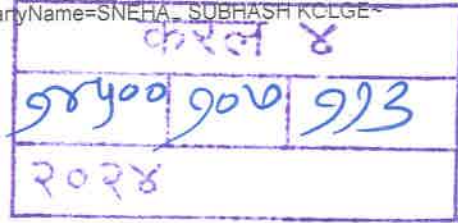 artyName=SNEHA_ SUBHASH KCLGE~
करल ४
१४५०० १०७ ११३
२०२४